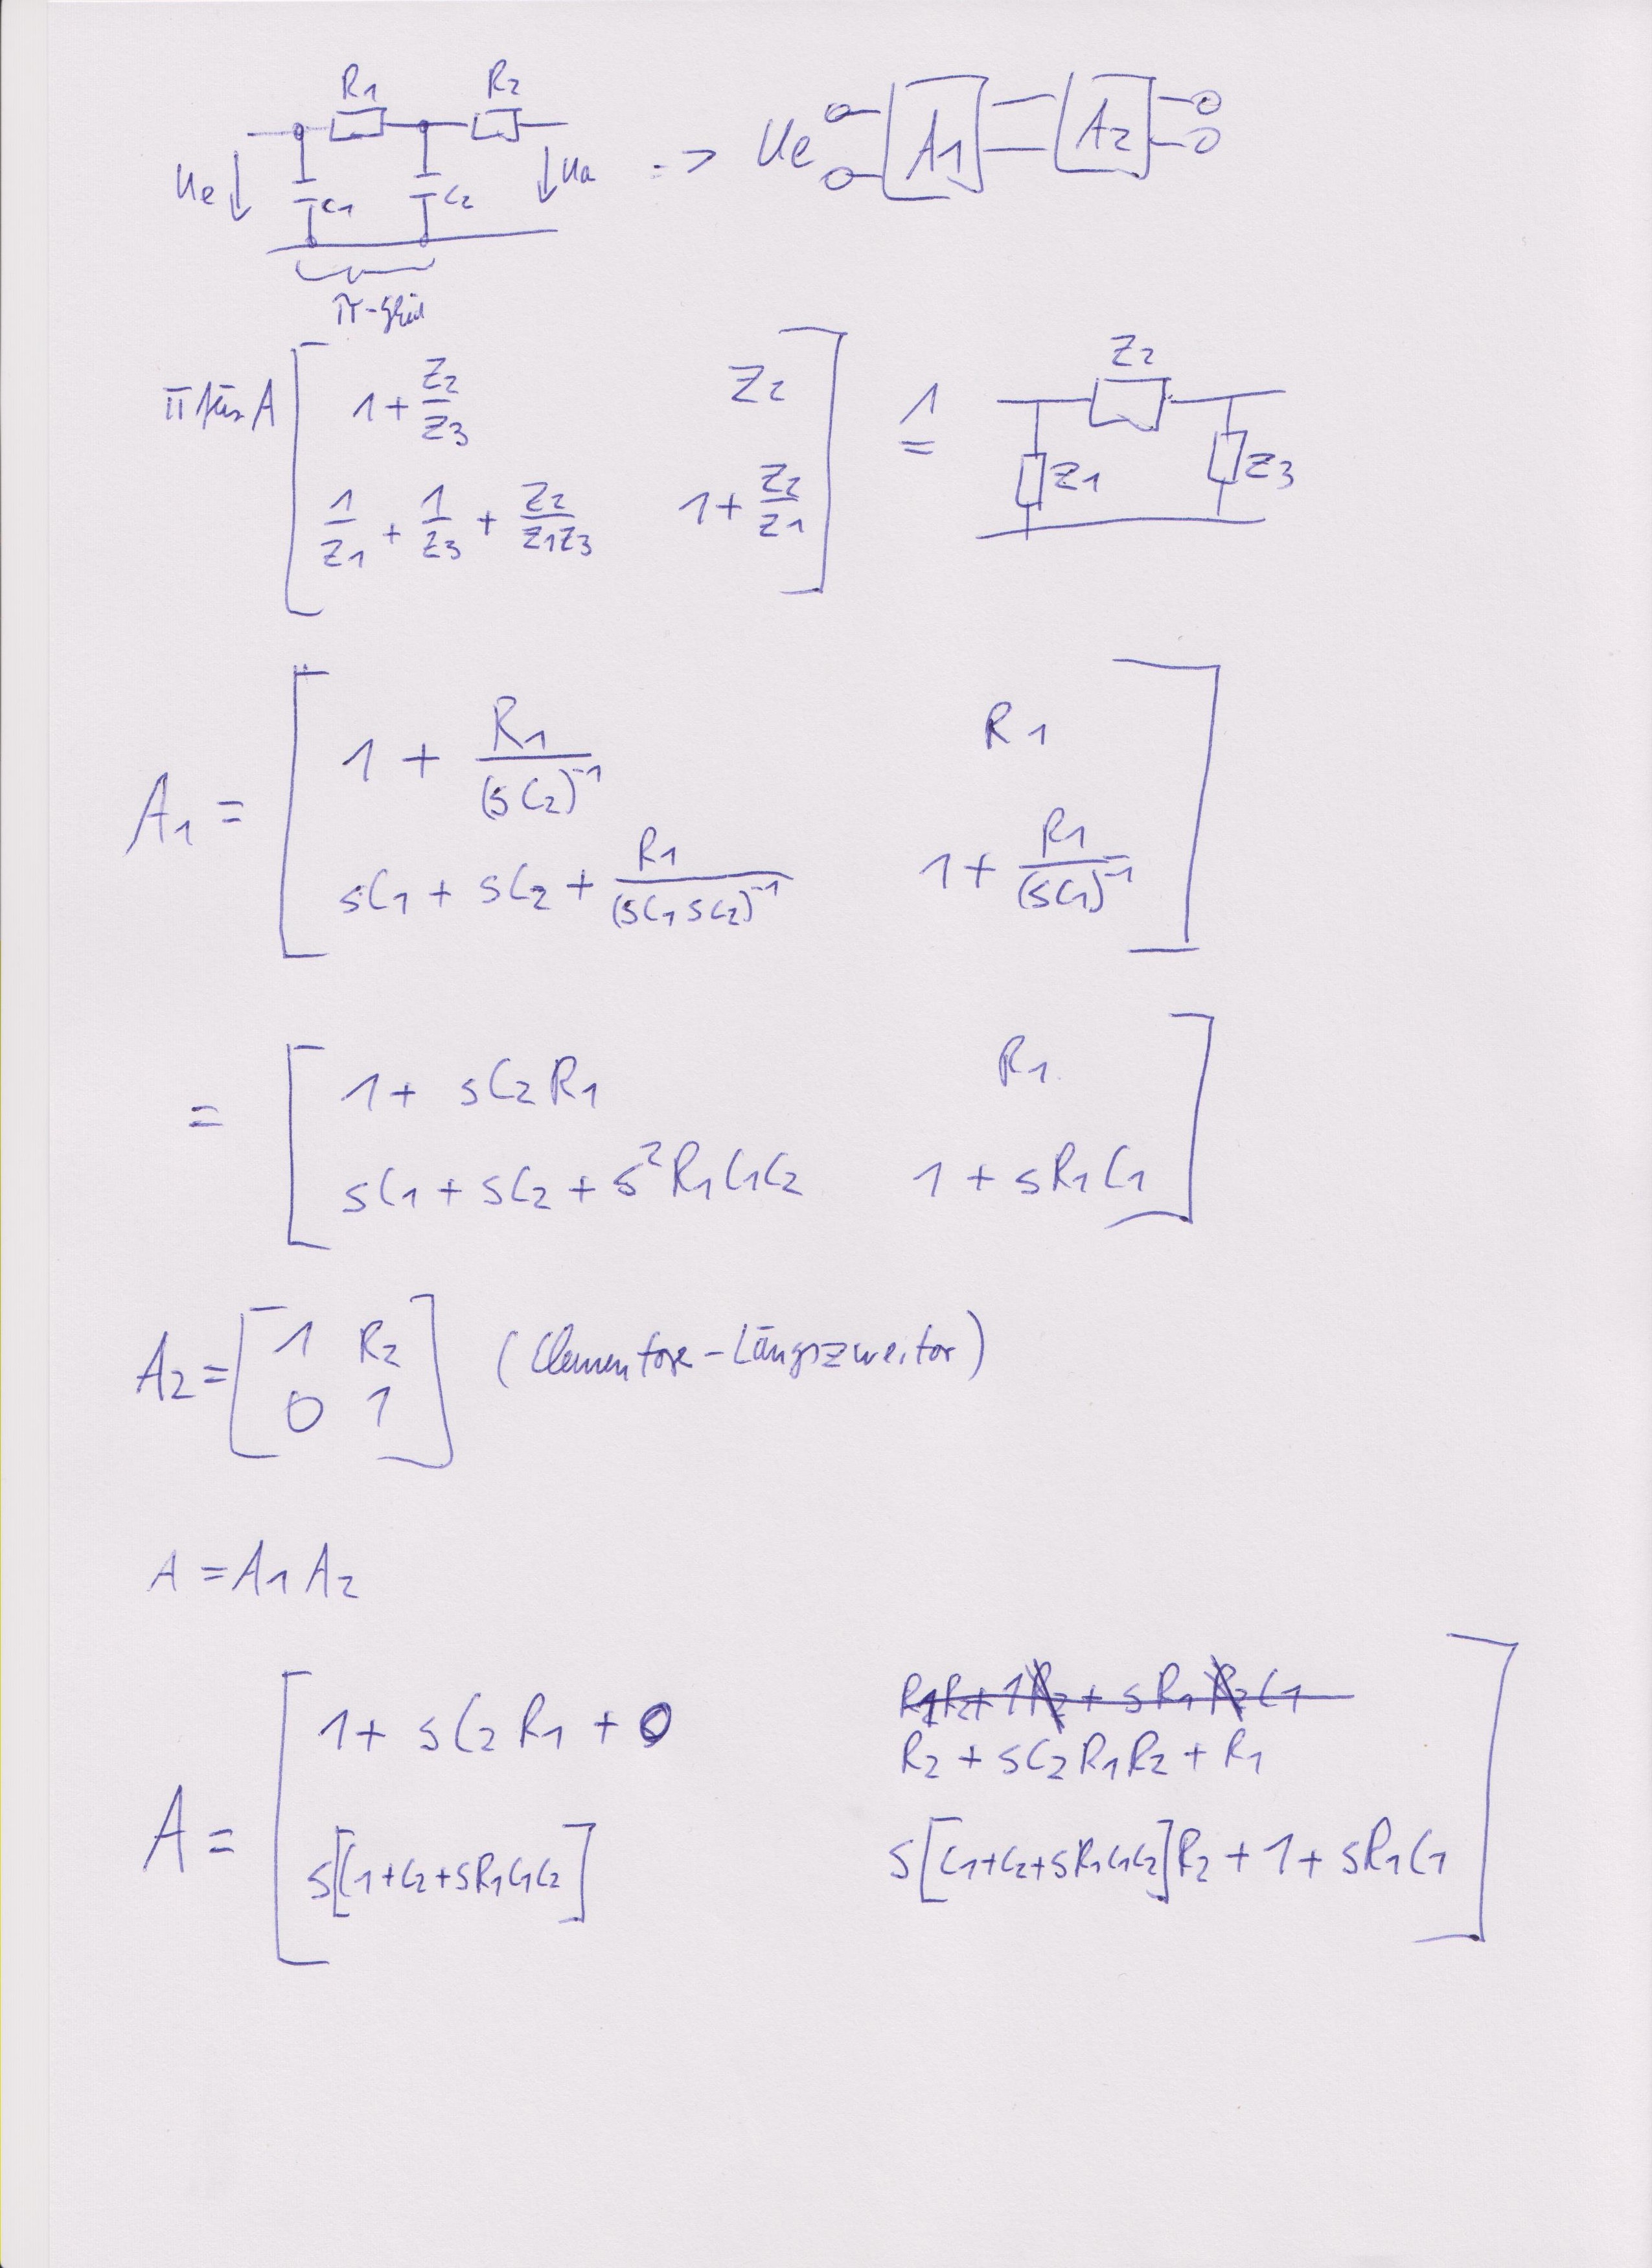 R1 R2
Ue C1 C2 Ua => Ue A1 A2
π-Glied
π für A [ 1 + Z2/Z3 Z2 ] ≙ Z2
[ 1/Z1 + 1/Z3 + Z2/Z1Z3 1 + Z2/Z1 ] Z1 Z3
A1 = [ 1 + R1/(sC2)^-1 R1 ]
[ sC1 + sC2 + R1/(sC1 sC2)^-1 1 + R1/(sC1)^-1 ]
= [ 1 + sC2R1 R1 ]
[ sC1 + sC2 + s²R1C1C2 1 + sR1C1 ]
A2 = [ 1 R2 ] (Elementare-Längszweitor)
[ 0 1 ]
A = A1 A2
R1R2 + 1R2 + sR1R2C1
A = [ 1 + sC2R1 + 0 R2 + sC2R1R2 + R1 ]
[ s[C1+C2+sR1C1C2] s[C1+C2+sR1C1C2]R2 + 1 + sR1C1 ]